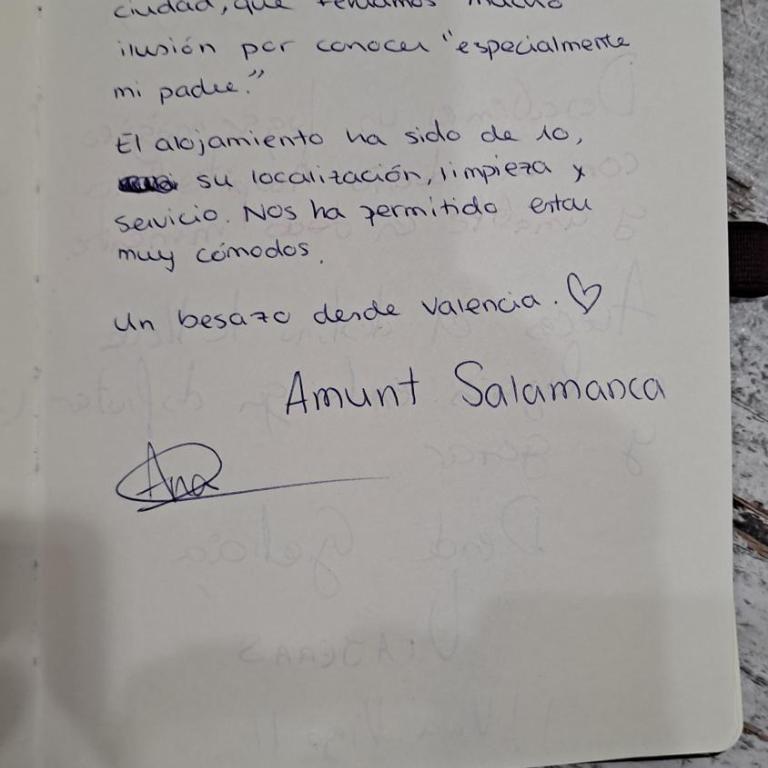 ciudad, que teníamos mucho
ilusión por conocer "especialmente
mi padre."
El alojamiento ha sido de 10,
su localización, limpieza y
servicio. Nos ha permitido estar
muy cómodos.
Un besazo desde Valencia. ♡
Amunt Salamanca
Ana